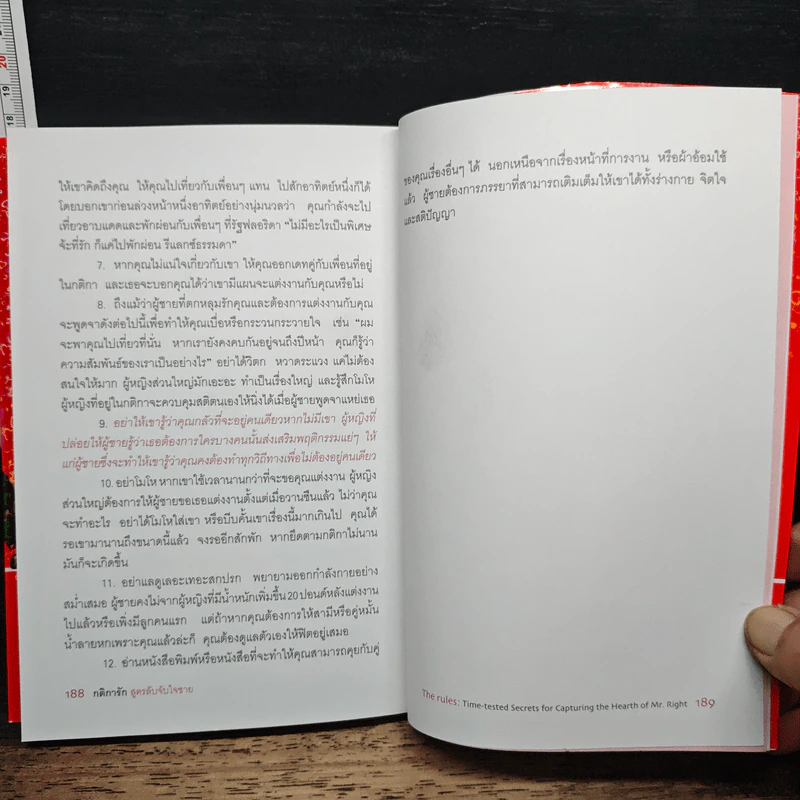 18 19 20
ให้เขาคิดถึงคุณ ให้คุณไปเที่ยวกับเพื่อนๆ แทน ไปสักอาทิตย์หนึ่งก็ได้
โดยบอกเขาก่อนล่วงหน้าหนึ่งอาทิตย์อย่างนุ่มนวลว่า คุณกำลังจะไป
เที่ยวอาบแดดและพักผ่อนกับเพื่อนๆ ที่รัฐฟลอริดา “ไม่มีอะไรเป็นพิเศษ
จ้ะที่รัก ก็แค่ไปพักผ่อน รีแลกซ์ธรรมดา”
7. หากคุณไม่แน่ใจเกี่ยวกับเขา ให้คุณออกเดทคู่กับเพื่อนที่อยู่
ในกติกา และเธอจะบอกคุณได้ว่าเขามีแผนจะแต่งงานกับคุณหรือไม่
8. ถึงแม้ว่าผู้ชายที่ตกหลุมรักคุณและต้องการแต่งงานกับคุณ
จะพูดจาดังต่อไปนี้เพื่อทำให้คุณเบื่อหรือกระวนกระวายใจ เช่น “ผม
จะพาคุณไปเที่ยวที่นั่น หากเรายังคงคบกันอยู่จนถึงปีหน้า คุณก็รู้ว่า
ความสัมพันธ์ของเราเป็นอย่างไร” อย่าได้วิตก หวาดระแวง แค่ไม่ต้อง
สนใจให้มาก ผู้หญิงส่วนใหญ่มักเอะอะ ทำเป็นเรื่องใหญ่ และรู้สึกโมโห
ผู้หญิงที่อยู่ในกติกาจะควบคุมสติตนเองให้นิ่งได้เมื่อผู้ชายพูดจาแหย่เธอ
9. อย่าให้เขารู้ว่าคุณกลัวที่จะอยู่คนเดียวหากไม่มีเขา ผู้หญิงที่
ปล่อยให้ผู้ชายรู้ว่าเธอต้องการใครบางคนนั้นส่งเสริมพฤติกรรมแย่ๆ ให้
แก่ผู้ชายซึ่งจะทำให้เขารู้ว่าคุณคงต้องทำทุกวิถีทางเพื่อไม่ต้องอยู่คนเดียว
10. อย่าโมโห หากเขาใช้เวลานานกว่าที่จะขอคุณแต่งงาน ผู้หญิง
ส่วนใหญ่ต้องการให้ผู้ชายขอเธอแต่งงานตั้งแต่เมื่อวานซืนแล้ว ไม่ว่าคุณ
จะทำอะไร อย่าได้โมโหใส่เขา หรือบีบคั้นเขาเรื่องนี้มากเกินไป คุณได้
รอเขามานานถึงขนาดนี้แล้ว จงรออีกสักพัก หากยึดตามกติกาไม่นาน
มันก็จะเกิดขึ้น
11. อย่าแลดูเลอะเทอะสกปรก พยายามออกกำลังกายอย่าง
สม่ำเสมอ ผู้ชายคงไม่จากผู้หญิงที่มีน้ำหนักเพิ่มขึ้น 20 ปอนด์หลังแต่งงาน
ไปแล้วหรือเพิ่งมีลูกคนแรก แต่ถ้าหากคุณต้องการให้สามีหรือคู่หมั้น
น้ำลายหกเพราะคุณแล้วล่ะก็ คุณต้องดูแลตัวเองให้ฟิตอยู่เสมอ
12. อ่านหนังสือพิมพ์หรือหนังสือที่จะทำให้คุณสามารถคุยกับคู่
188 กติการัก สูตรลับจับใจชาย
ของคุณเรื่องอื่นๆ ได้ นอกเหนือจากเรื่องหน้าที่การงาน หรือผ้าอ้อมใช้
แล้ว ผู้ชายต้องการภรรยาที่สามารถเติมเต็มให้เขาได้ทั้งร่างกาย จิตใจ
และสติปัญญา
The rules: Time-tested Secrets for Capturing the Hearth of Mr. Right 189